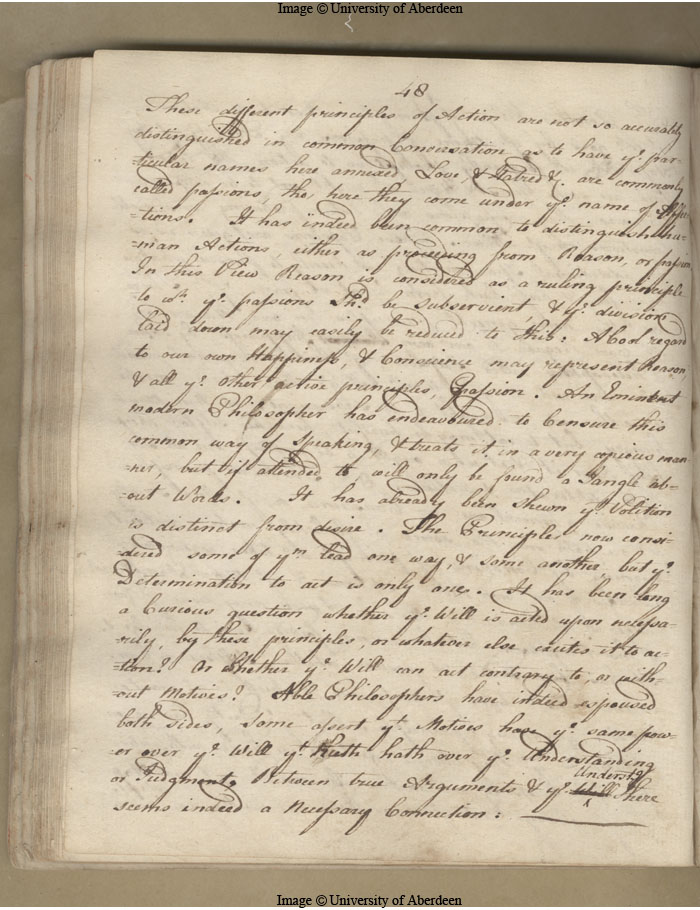 Image © University of Aberdeen
48
These different principles of Action are not so accurately
distinguished in common Conversation as to have yͤ. par-
-ticular names here annexed Love, & Hatred &c. are commonly
called passions, tho, here they come under yͤ. name of Affec-
-tions. It has indeed been common to distinguish hu-
-man Actions, either as proceeding from Reason, or passion
In this View Reason is considered as a ruling principle
to wͨͪ. yͤ. passions Shͩ. be subservient, & yͤ. divisions
laid down may easily be reduced to this: A Cool regard
to our own Happiness, & Conscience may represent Reason
& all yͤ. other active principles, passion. An Eminent
modern Philosopher has endeavoured to Censure this
common way of Speaking, & treats it, in a very copious man-
-ner, but if attended to, will only be found a Jangle ab-
-out Words. It has already been Shewn yͭ. Volition
is distinct from desire. The Principles now consi-
-dered some of yͫ lead one way, & some another, but yͤ.
Determination to act is only one. It has been long
a Curious question whether yͤ. Will is acted upon necessa-
-rily, by these principles, or whatever else excites it to ac-
-tion? Or Whether yͤ. Will can act contrary to, or with-
-out Motives? Able Philosophers have indeed espoused
both sides, Some assert yͭ. Motives have yͤ. same pow-
-er over yͤ. Will yͭ. Truth hath over yͤ. Understanding
or Judgment. Between true Arguments & yͤ. Will Underst͡g There
seems indeed a Necessary Connection:
Image © University of Aberdeen